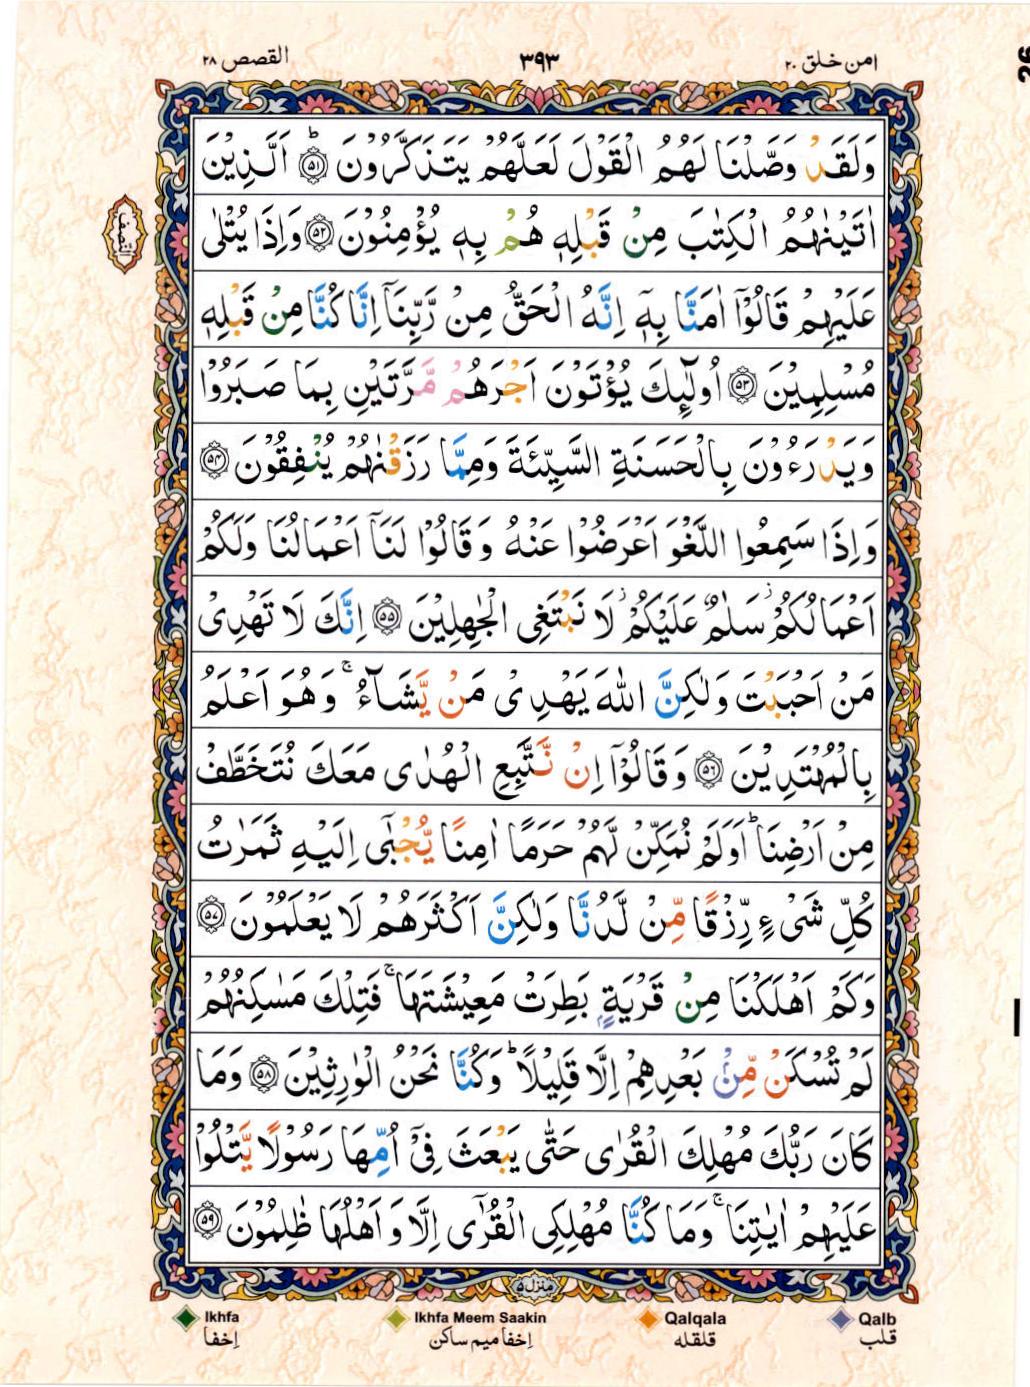 القصص ٢٨
٣٩٣
امن خلق ٢٠
وَلَقَدْ وَصَّلْنَا لَهُمُ الْقَوْلَ لَعَلَّهُمْ يَتَذَكَّرُوْنَ ؕ﴿۵۱﴾ اَلَّذِيْنَ
اٰتَيْنٰهُمُ الْكِتٰبَ مِنْ قَبْلِهٖ هُمْ بِهٖ يُؤْمِنُوْنَ ﴿۵۲﴾ وَاِذَا يُتْلٰى
النصف
عَلَيْهِمْ قَالُوْٓا اٰمَنَّا بِهٖٓ اِنَّهُ الْحَقُّ مِنْ رَّبِّنَآ اِنَّا كُنَّا مِنْ قَبْلِهٖ
مُسْلِمِيْنَ ﴿۵۳﴾ اُولٰٓئِكَ يُؤْتَوْنَ اَجْرَهُمْ مَّرَّتَيْنِ بِمَا صَبَرُوْا
وَيَدْرَءُوْنَ بِالْحَسَنَةِ السَّيِّئَةَ وَمِمَّا رَزَقْنٰهُمْ يُنْفِقُوْنَ ﴿۵۴﴾
وَاِذَا سَمِعُوا اللَّغْوَ اَعْرَضُوْا عَنْهُ وَقَالُوْا لَنَآ اَعْمَالُنَا وَلَكُمْ
اَعْمَالُكُمْ ؗ سَلٰمٌ عَلَيْكُمْ ؗ لَا نَبْتَغِى الْجٰهِلِيْنَ ﴿۵۵﴾ اِنَّكَ لَا تَهْدِىْ
مَنْ اَحْبَبْتَ وَلٰكِنَّ اللّٰهَ يَهْدِىْ مَنْ يَّشَآءُ ۚ وَهُوَ اَعْلَمُ
بِالْمُهْتَدِيْنَ ﴿۵۶﴾ وَقَالُوْٓا اِنْ نَّتَّبِعِ الْهُدٰى مَعَكَ نُتَخَطَّفْ
مِنْ اَرْضِنَا ؕ اَوَلَمْ نُمَكِّنْ لَّهُمْ حَرَمًا اٰمِنًا يُّجْبٰٓى اِلَيْهِ ثَمَرٰتُ
كُلِّ شَىْءٍ رِّزْقًا مِّنْ لَّدُنَّا وَلٰكِنَّ اَكْثَرَهُمْ لَا يَعْلَمُوْنَ ﴿۵۷﴾
وَكَمْ اَهْلَكْنَا مِنْ قَرْيَةٍۭ بَطِرَتْ مَعِيْشَتَهَا ۚ فَتِلْكَ مَسٰكِنُهُمْ
لَمْ تُسْكَنْ مِّنْۢ بَعْدِهِمْ اِلَّا قَلِيْلًا ؕ وَكُنَّا نَحْنُ الْوٰرِثِيْنَ ﴿۵۸﴾ وَمَا
كَانَ رَبُّكَ مُهْلِكَ الْقُرٰى حَتّٰى يَبْعَثَ فِىْٓ اُمِّهَا رَسُوْلًا يَّتْلُوْا
عَلَيْهِمْ اٰيٰتِنَا ۚ وَمَا كُنَّا مُهْلِكِى الْقُرٰٓى اِلَّا وَاَهْلُهَا ظٰلِمُوْنَ ﴿۵۹﴾
منزل ۵
Ikhfa
Ikhfa Meem Saakin
Qalqala
Qalb
اِخفا
اِخفا میم ساکن
قلقله
قلب